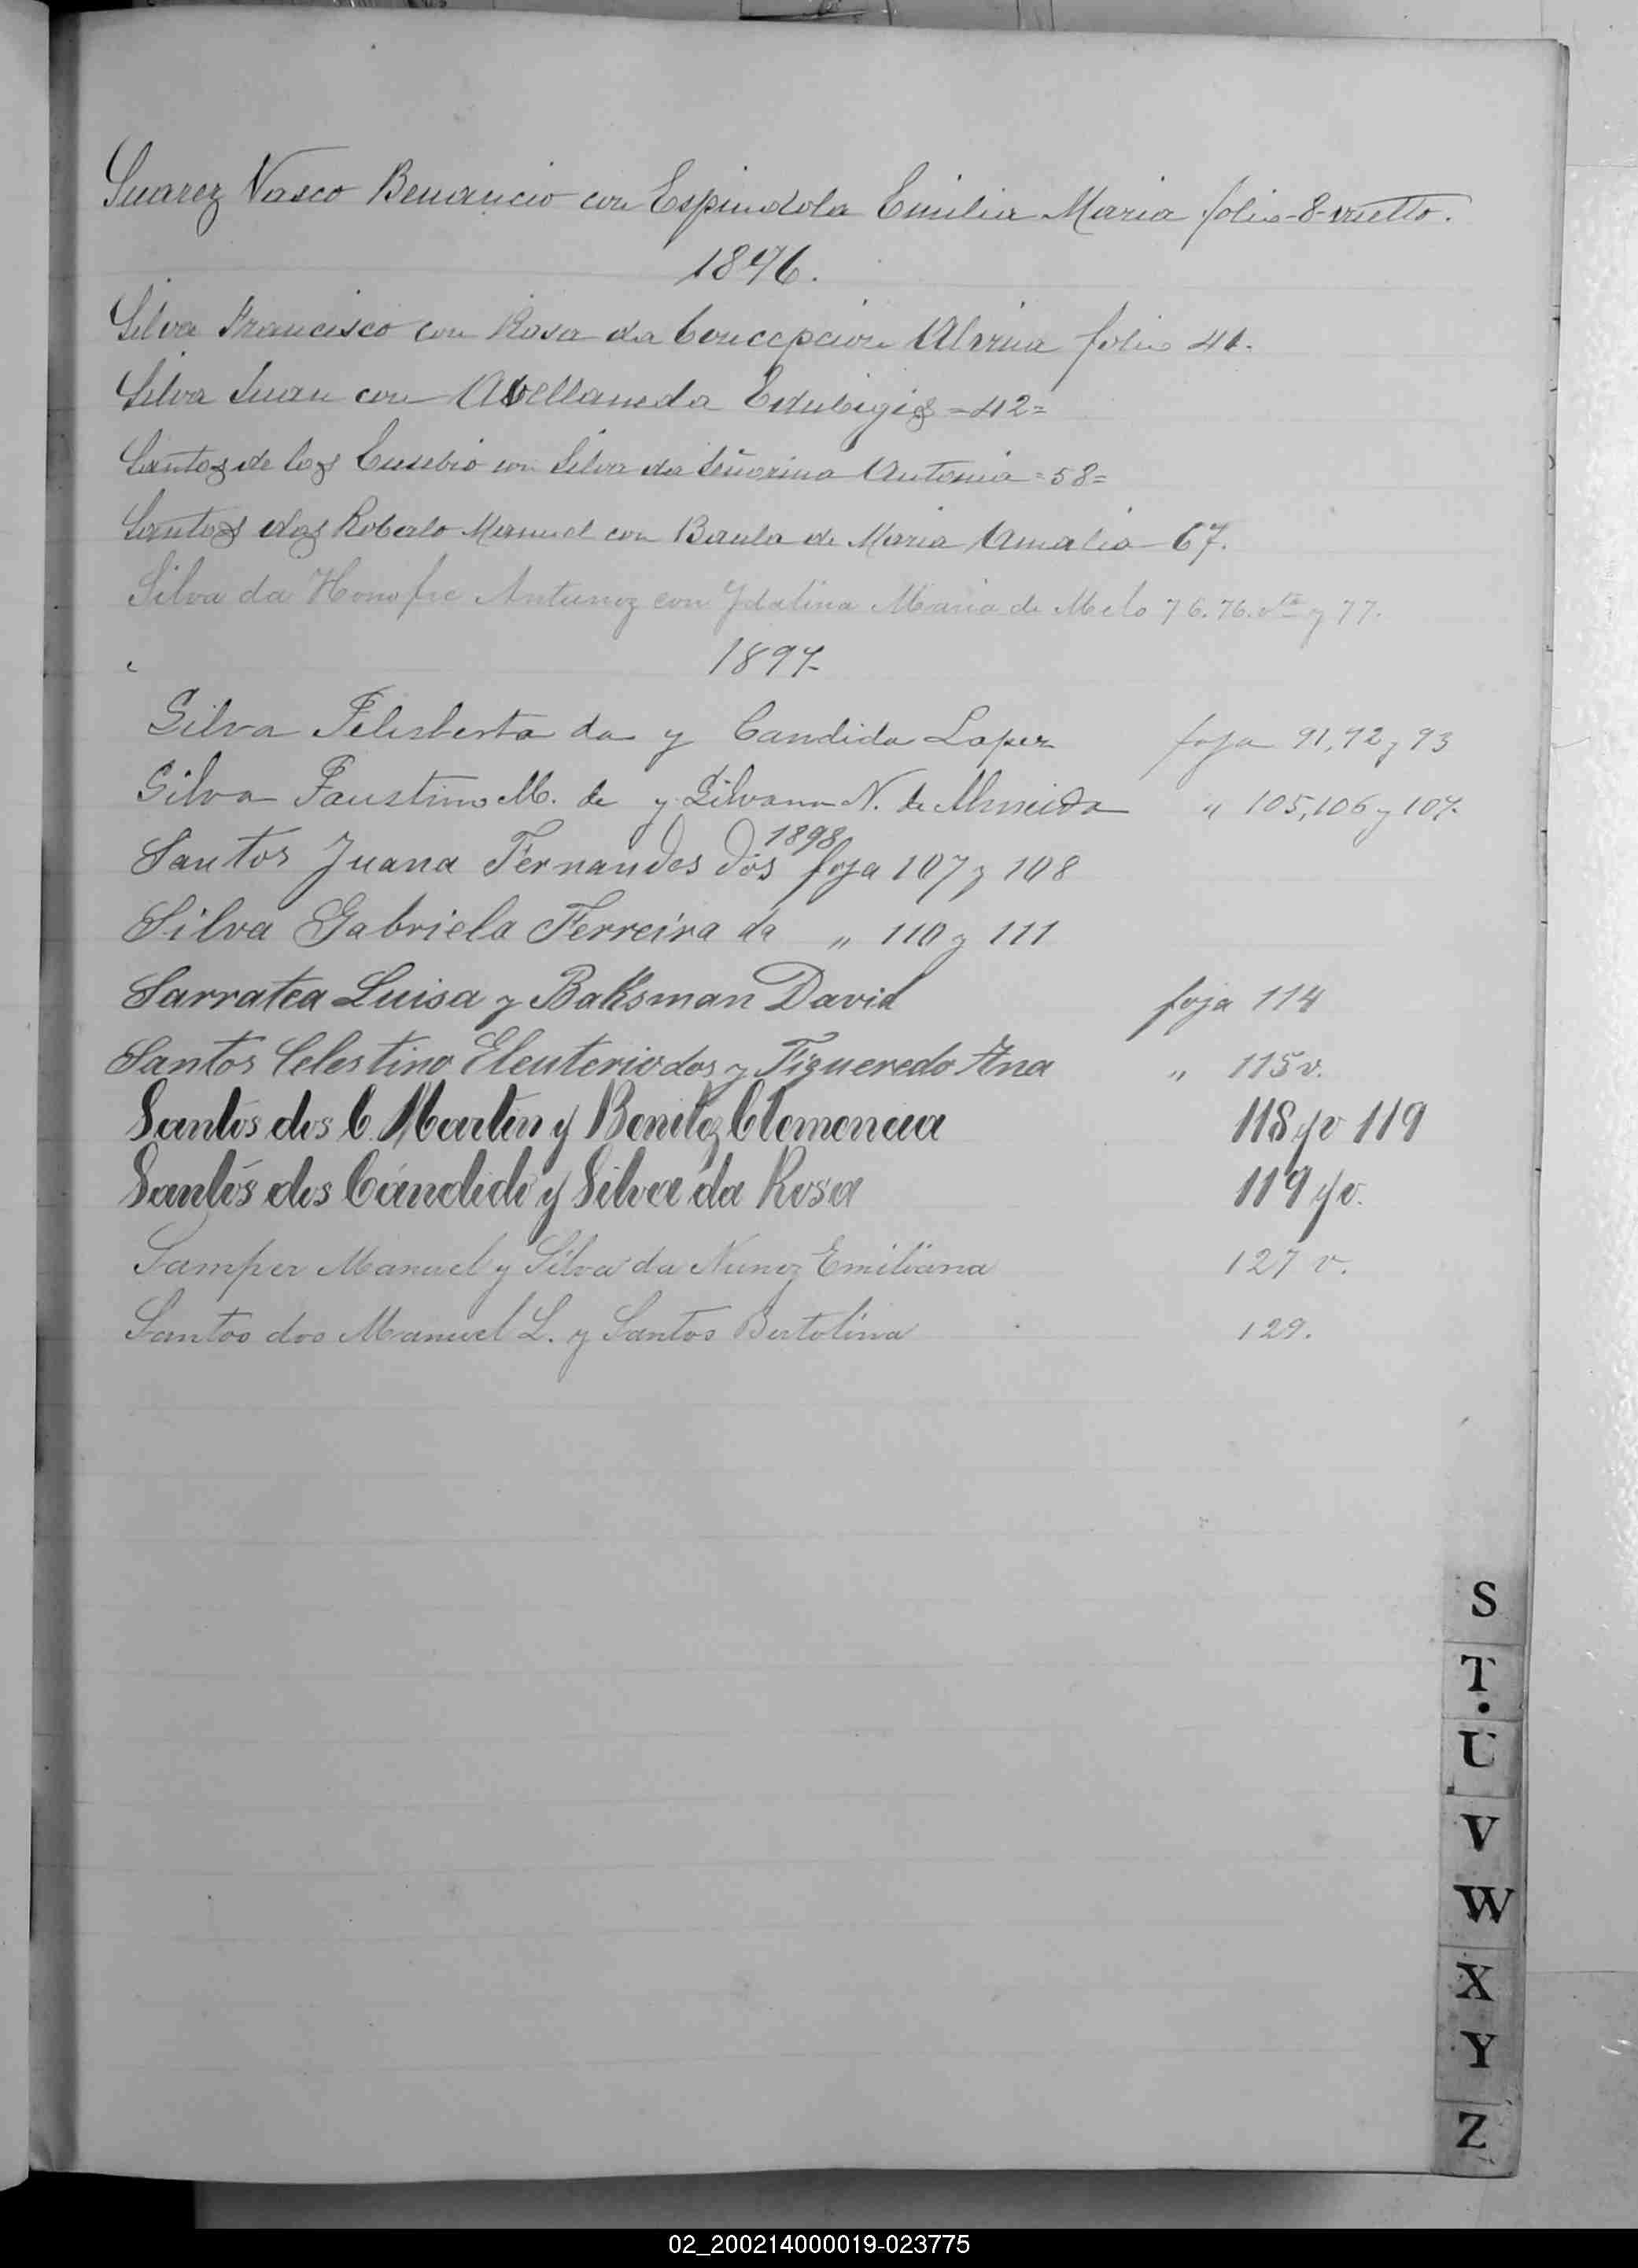 Suarez Vasco Benancio con Espindola Emilia Maria folio-8-vuelto.
1896.
Silva Francisco con Rosa da Concepcion Alvina folio 41.
Silva Juan con Abellaneda Edubigis =42=
Santos de los Eusebio con Silva da Señorina Antonia =58=
Santos dos Roberto Manuel con Baula de Maria Amalia 67.
Silva da Honofre Antunez con Ydalina Maria de Melo 76. 76. vta y 77.
1897
Silva Felisberta da y Candida Lopez foja 91, 92 y 93
Silva Faustino M. de y Silvana N. de Almeida " 105, 106 y 107.
1898
Santos Juana Fernandes dos foja 107 y 108
Silva Gabriela Ferreira da " 110 y 111
Sarratea Luisa y Baksman David foja 114
Santos Celestino Eleuterio dos y Figueredo Ana " 115 v.
Santos dos C. Martin y Benitez Clemencia 118 y v 119
Santos dos Cándido y Silva da Rosa 119 y v.
Samper Manuel y Silva da Nunez Emiliana 127 v.
Santos dos Manuel L. y Santos Bertolina 129.
S
T
U
V
W
X
Y
Z
02_200214000019-023775